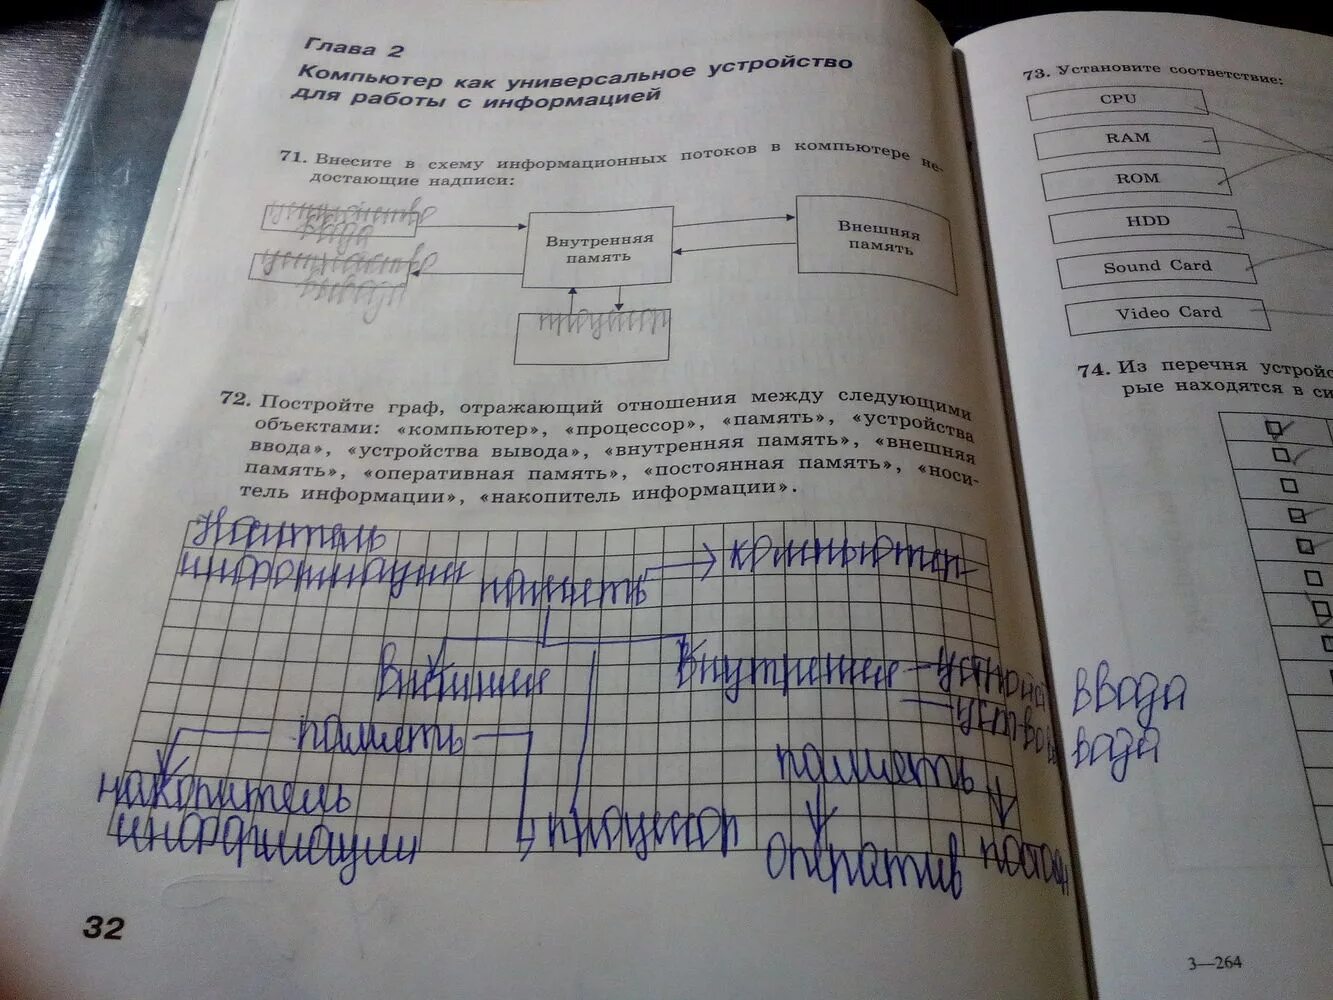 Глава 2
Компьютер как универсальное устройство
для работы с информацией
71. Внесите в схему информационных потоков в компьютере не-
достающие надписи:
устройство
ввода
Внутренняя
память
Внешняя
память
устройство
вывода
процессор
72. Постройте граф, отражающий отношения между следующими
объектами: «компьютер», «процессор», «память», «устройства
ввода», «устройства вывода», «внутренняя память», «внешняя
память», «оперативная память», «постоянная память», «носи-
тель информации», «накопитель информации».
Носитель
информации
память
компьютер
Внешняя
Внутренняя
ввода
память
вода
память
накопитель
информации
процессор
оператив
32
73. Установите соответствие:
CPU
RAM
ROM
HDD
Sound Card
Video Card
74. Из перечня устройс
рые находятся в си
3—264